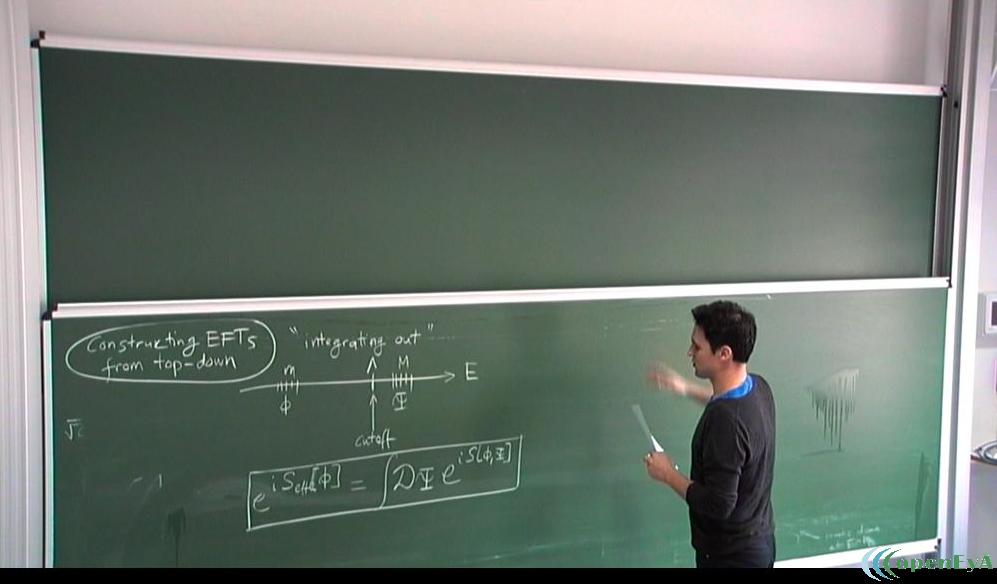 Constructing EFTs
from top-down
"integrating out"
m Λ M E
ϕ Ψ
cutoff
e^{iS_{eff}[ϕ]} = ∫DΨ e^{iS[ϕ,Ψ]}
openEyA